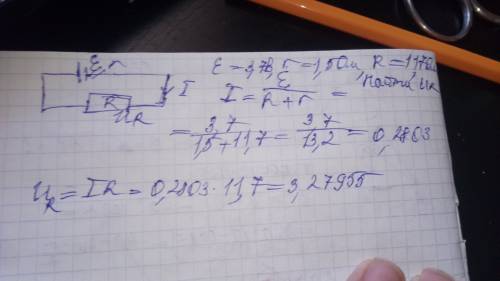 ℰ r
I
R
U_R
ℰ = 3,7В, r = 1,5 Ом, R = 11,7 Ом
Найти U_R
I = ℰ/(R + r) =
= 3,7/(1,5 + 11,7) = 3,7/13,2 = 0,2803
U_R = IR = 0,2803 · 11,7 = 3,27955